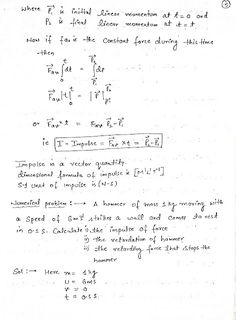 where P₁ is initial linear momentum at t = 0 and
P₂ is final linear momentum at t = t
Now if fav is the constant force during this time
then
F⃗av ∫₀ᵗ dt = ∫ dp⃗
F⃗av |t|₀ᵗ = |P⃗|
or F⃗av × t = P⃗₂ - P⃗₁
ie I⃗ = Impulse = F⃗av × t = P⃗₂ - P⃗₁
Impulse is a vector quantity.
dimensional formula of impulse is [M¹L¹T⁻¹]
SI unit of impulse is (N-S)
Numerical problem :→ A hammer of mass 1kg moving with
a speed of 6m/s strikes a wall and comes to rest
in 0.1 s. Calculate i) the impulse of force
ii) the retardation of hammer
iii) the retarding force that stops the
hammer
Sol :→ Here m = 1kg
U = 6m/s
V = 0
t = 0.1 s.